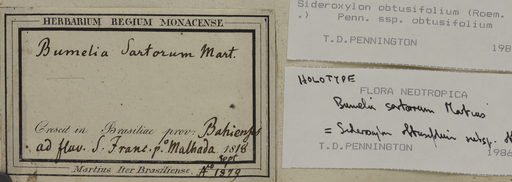 HERBARIUM REGIUM MONACENSE
Bumelia Sartorum Mart.
Crescit in Brasiliae prov: Bahiensis
ad fluv. S. Franc. p. Malhada 1818
Sept
Martius Iter Brasiliense.
Sideroxylon obtusifolium (Roem.
.) Penn. ssp. obtusifolium
T.D.PENNINGTON 198
HOLOTYPE
FLORA NEOTROPICA
Bumelia sartorum Martius
= Sideroxylon obtusifolium subsp.
T.D.PENNINGTON 1986